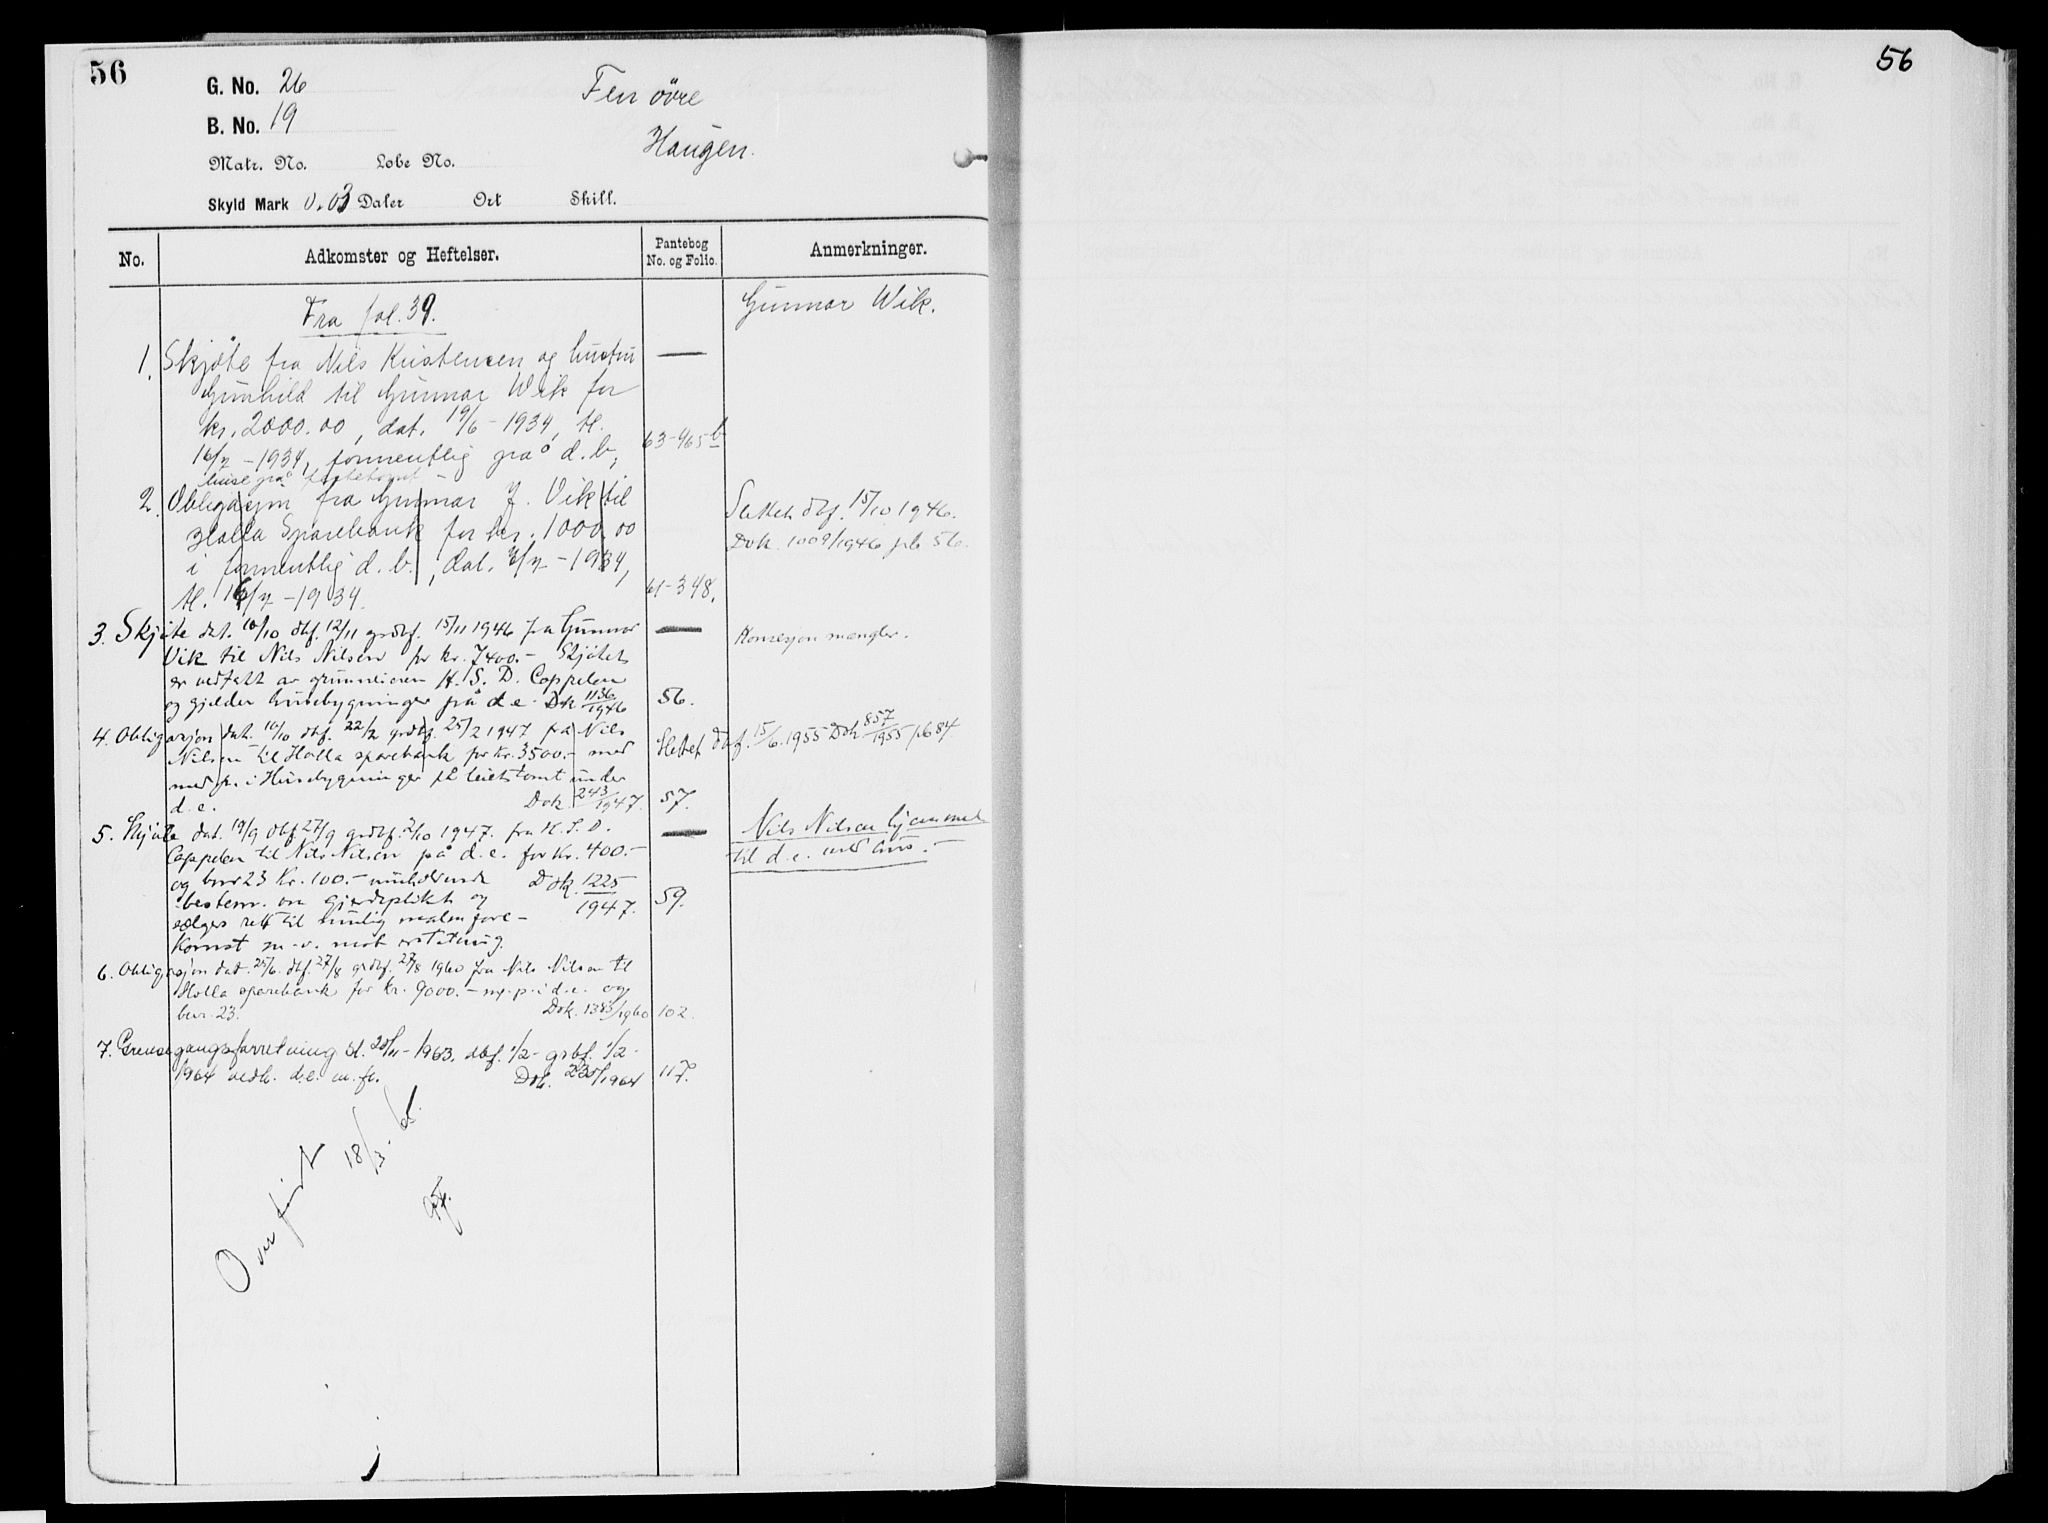 56
G. No. 26
Fen övre
B. No. 19
Haugen.
Matr. No. Løbe No.
Skyld Mark 0.03 Daler Ort Skill.
No. Adkomster og Heftelser. Pantebog No. og Folio. Anmerkninger.
Fra fol. 39. Gunnar Wik.
1. Skjöte fra Nils Kristensen og hustru —
Gunhild til Gunnar Wik for
kr. 2000.00, dat. 19/6-1934, tl.
16/7-1934, formentlig på d. b., 63-465 b
huse på
2. Obligasjon fra Gunnar J. Vik til Slettet dbf. 15/10 1946.
Holla Sparebank for kr. 1000.00 Dok. 1009/1946 pb 56.
i formentlig d. b., dat. 7/7-1934,
tl. 16/7-1934. 61-348.
3. Skjöte dat. 10/10 dbf. 12/11 grdbf. 15/11 1946 fra Gunnar — Konsesjon mangler.
Vik til Nils Nilsen for kr. 7400.- Skjötet
er vedtatt av grunneieren H. S. D. Cappelen
og gjelder husebygninger på d. e. Dok 1136/1946 56.
4. Obligasjon dat. 10/10 dbf. 22/2 grdbf. 25/2 1947 fra Nils Slettet dbf. 15/6.1955 Dok 857/1955 pb 84
Nilsen til Holla sparebank for kr. 3500.- med
med p. i Husebygninger på leietomt under
d. e. Dok. 243/1947. 57.
5. Skjöte dat. 19/9 dbf 27/9 grdbf. 2/10 1947. fra H. S. D. — Nils Nilsen hjemmel
Cappelen til Nils Nilsen på d. e. for Kr. 400.- til d. e. med hus.-
og bnr 23 Kr. 100.- inneholdende Dok. 1225/1947. 59.
bestem. om gjerdeplikt og
selgers rett til mulig malm fore-
komst m.v. mot erstatning.
6. Obligasjon dat. 25/6. dbf. 27/8 grdbf. 27/8 1960 fra Nils Nilsen til
Holla sparebank for kr. 9000.- m. p. i d. e. og
bnr. 23. Dok. 1383/1960 102.
7. Grensegangsforretning tl. 28/11-1963. dbf. 1/2- grbf. 1/2-
1964 vedk. d. e. m. fl. Dok. 230/1964 117.
Overført 18/3.65.
56